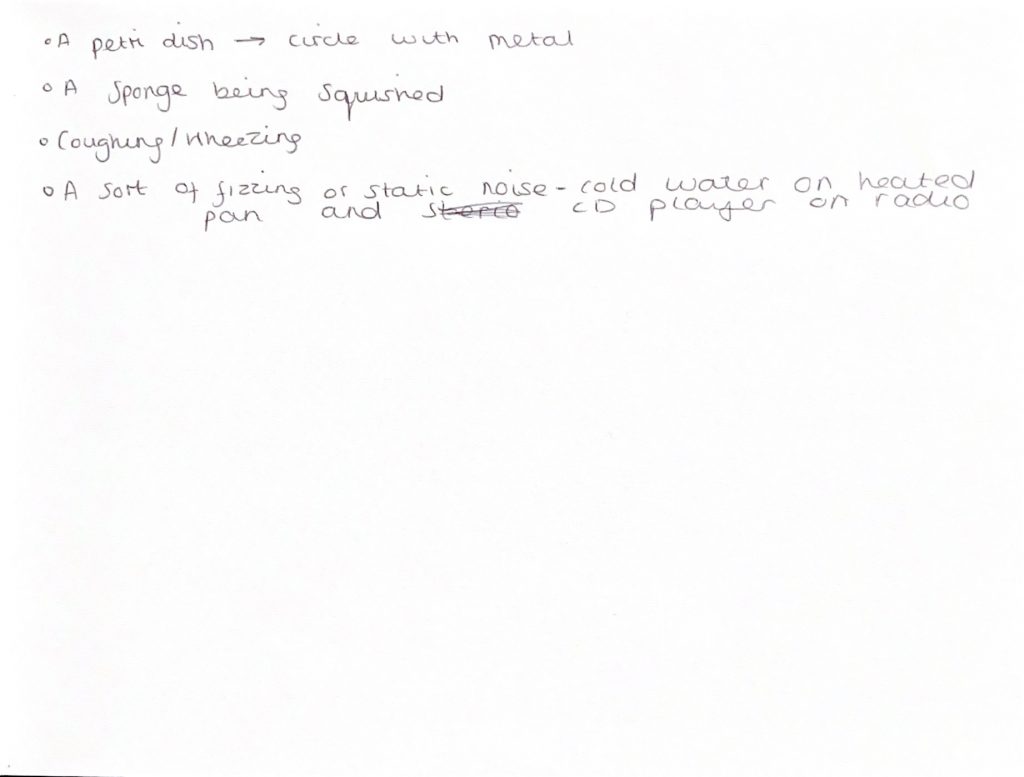 ∘ A petri dish → circle with metal
∘ A Sponge being squished
∘ Coughing / Wheezing
∘ A sort of fizzing or static noise - cold water on heated
pan and CD player on radio